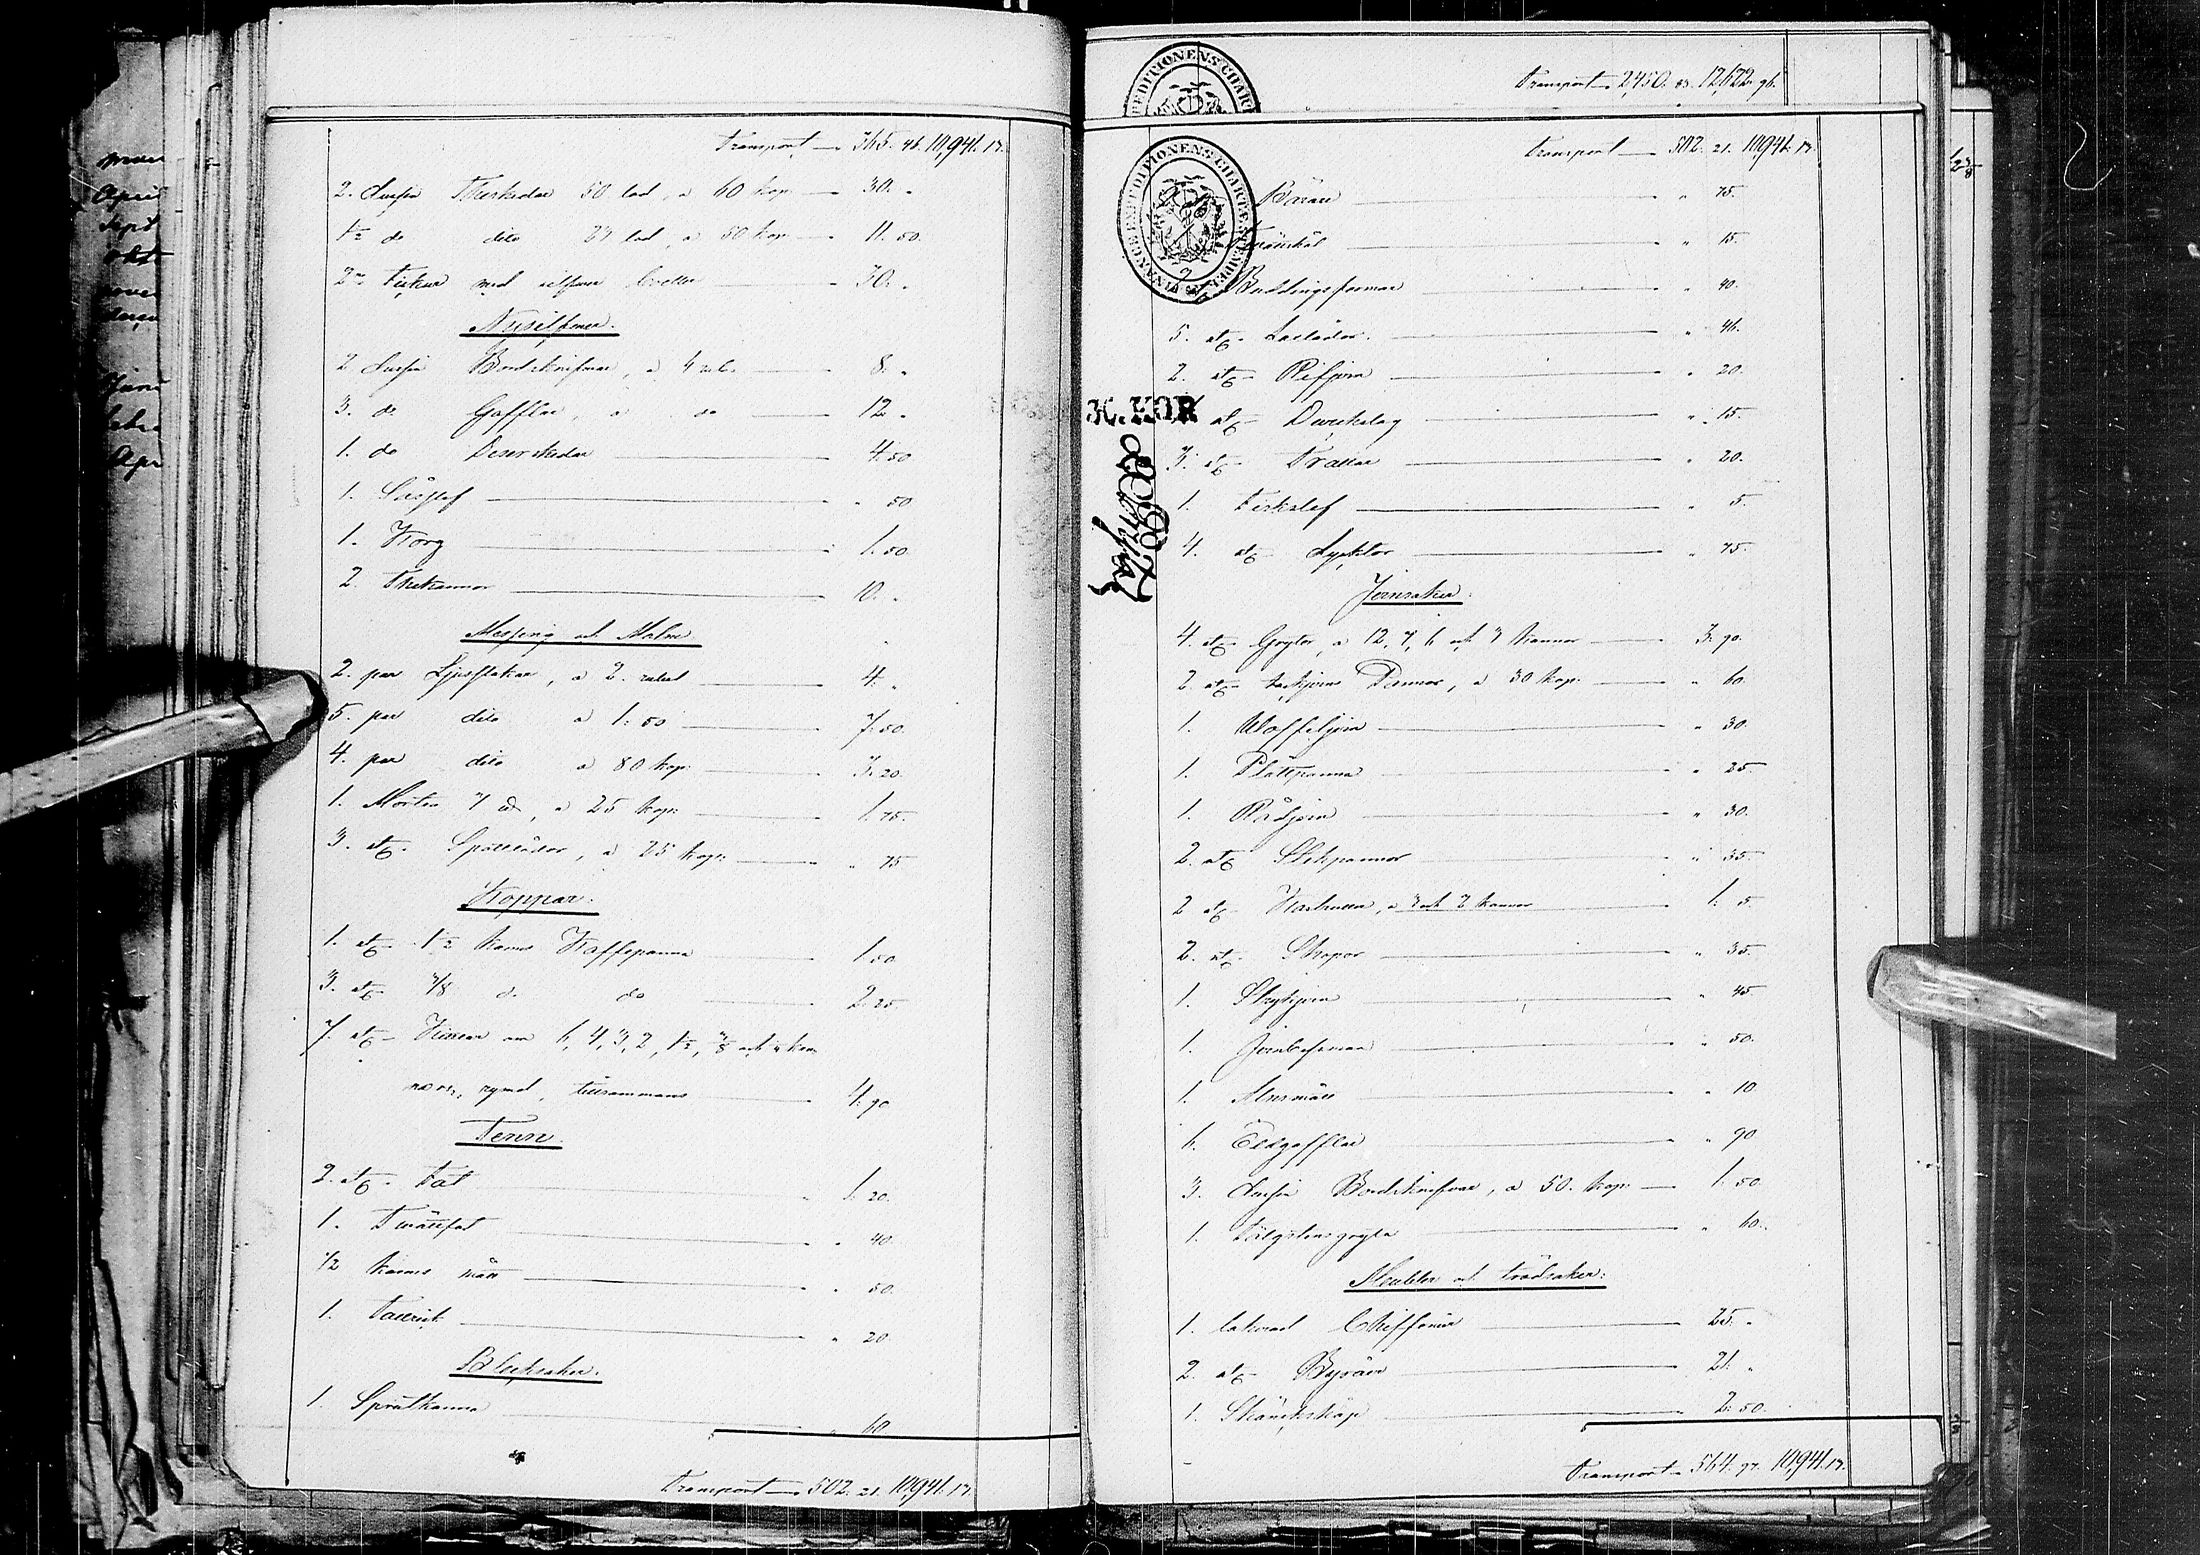 Transport 365. 46. 10,941. 17.
2. dussin Theskedar 50 lod, a 60 kop 30. "
1½ do dito 27 lod, a 50 kop 11. 50.
med silfver 30. "
Nysilfver.
2 dussin Bordsknifvar, a 4 rub. 8. "
3. do Gafflar, a do 12 "
1. do Desertskedar 4. 50
1. Såsslef " 50
1. Korg 1. 50.
2. Thekannor 10. "
Messing och Malm
2. par Ljusstakar, a 2. rubel 4. "
5. par dito a 1: 50 7. 50.
4. par dito a 80 kop: 3. 20
1. Mortel 7 a 25 kop: 1. 75.
3. st. Spottlådor, a 25 kop: " 75
Koppar:
1. st. 1½ kanns Kaffepanna 1. 50
3. st. 7/8 do do 2. 25.
7. st. Kittlar om 6, 4, 3, 2, 1½, 7/8 och
rymd, tillsammans 4. 90
Tenn
2. st. Fat 1. 20.
1. Tvättfat " 40.
1/2 kanns mått " 50.
1. Tallrik " 20
Blecksaker.
1. Språtkanna " 60
Transport 502. 21. 10,941. 17.
Transport 2,450. 83. 12,622. 96.
EXPEDITIONENS CHARTÆ
Transport 502. 21. 10,941. 17
FINANCE EXPEDITIONENS CHARTÆ STÄMPEL
30. KOP.
" 75.
" 15.
Puddingsformar " 40.
5. st. " 46.
2. st. Rifjern " 20.
st. Durchslag " 15.
3. st. Trattar " 20.
1. Fiskslef " 5.
4. st. Lycktor " 75.
Jernsaker:
4. st. Grytor, a 12, 7, 6 och 3 kannor 3. 90.
2. st. Pannor, a 30 kop: " 60.
1. Woffeljern " 30.
1. Plättpanna " 25.
1. Rådjern " 30.
2. st. Stekpannor " 35.
2 st. a 3 och 2 kannor 1. 5.
2. st. Skopor " 35.
1. Strykjern " 45.
1. " 50.
1. " 10
6. Eldgafflar " 90
3. dussin Bordsknifvar, a 50. kop: 1. 50.
1. Täljstensgryta " 60.
Meubler och trädsaker:
1. lakerad Chiffonier 25. "
2. st. Byråer 21. "
1. Skänkskåp 2. 50.
Transport 564. 97. 10,941. 17.